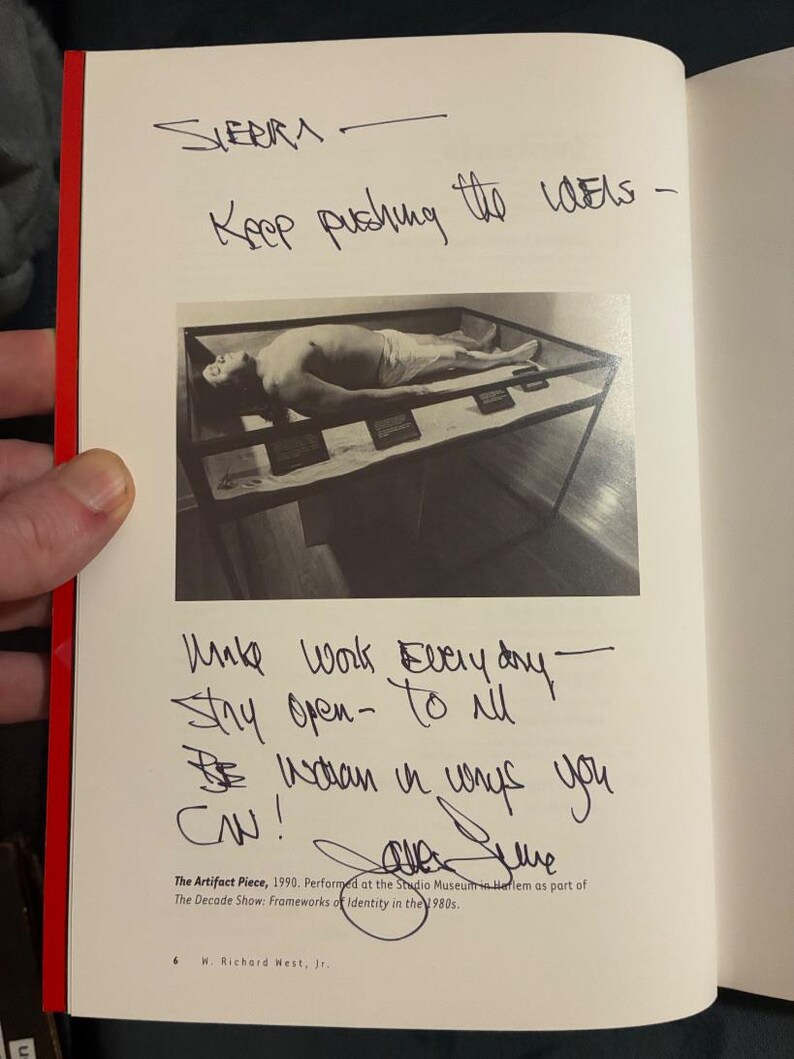 SIERRA —
Keep pushing the IDEAs —
Make work Everyday —
Stay open – To All
BE Indian in ways you
CAN!
James Luna
The Artifact Piece, 1990. Performed at the Studio Museum in Harlem as part of
The Decade Show: Frameworks of Identity in the 1980s.
6 W. Richard West, Jr.